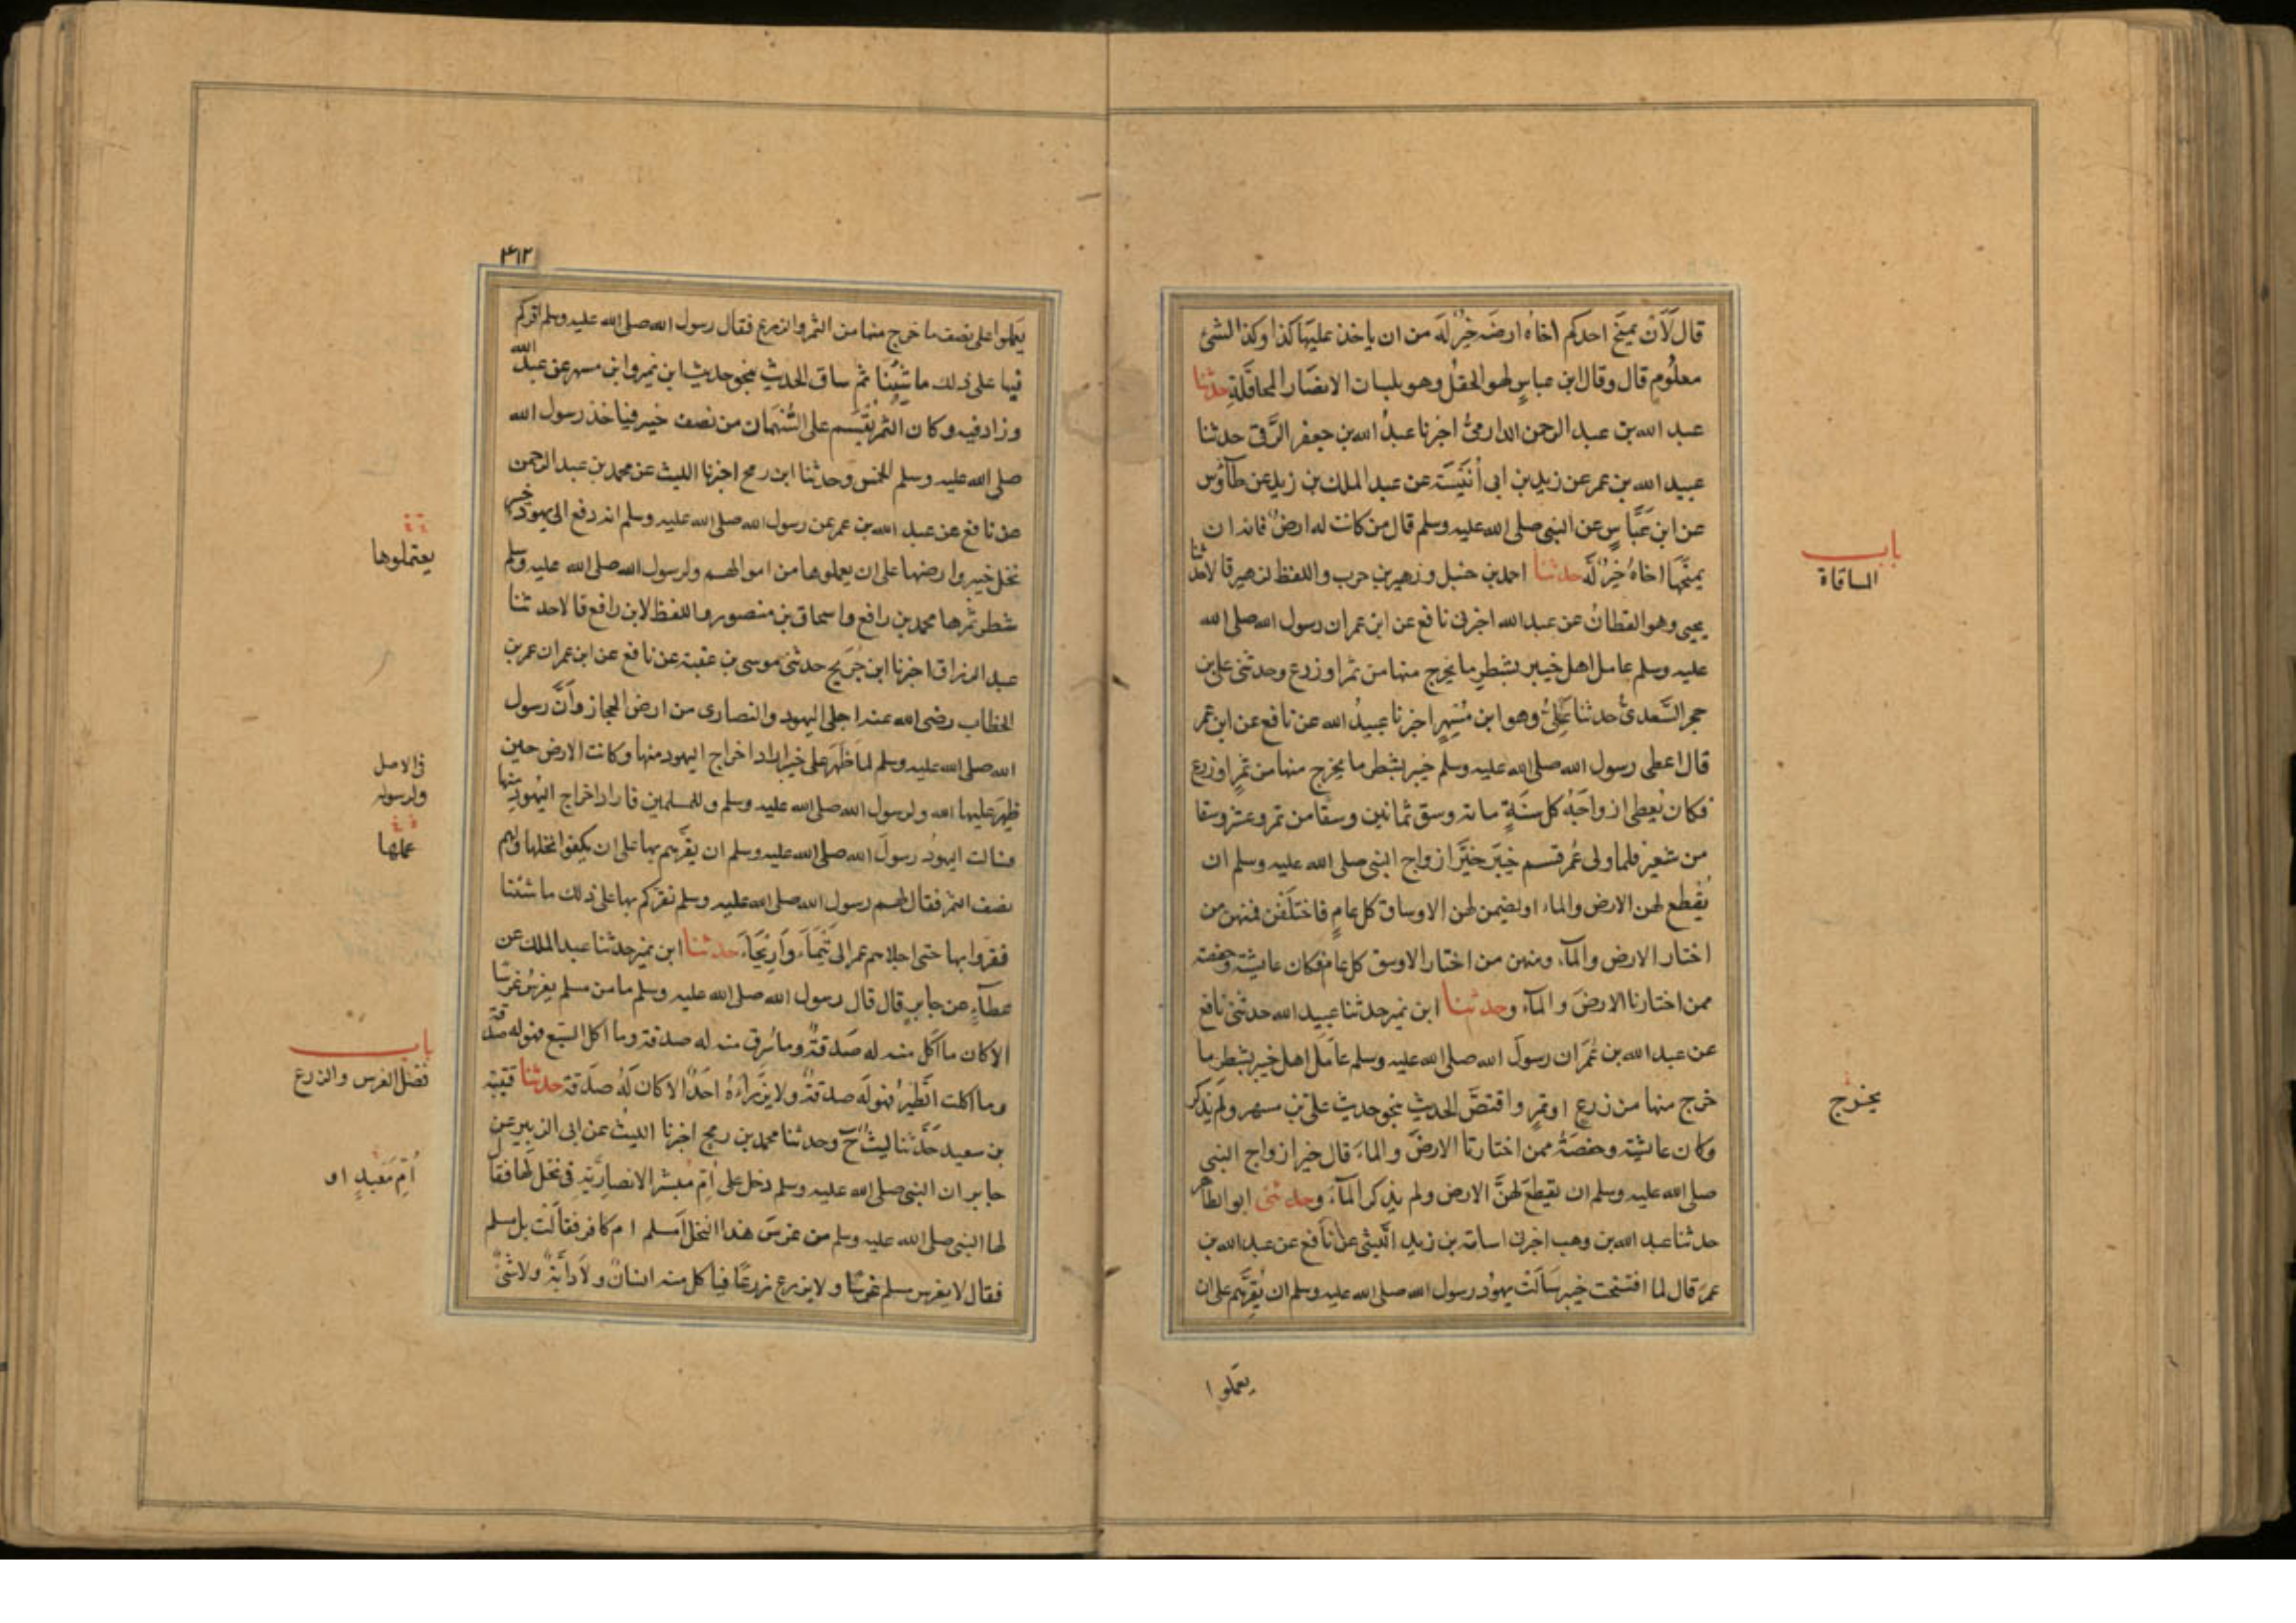 قال لَاَنْ يمنَح احدكم اخاه ارضَه خيرٌ لَه من ان ياخذ عليَها كذا وكذا الشئ
معلُومٍ قال وقال ابن عباسٍ هو الحقلُ وهو بلسان الانصَار المحاقَلَة حدثنا
عبد الله بن عبد الرحمن الدارميُّ اخبرنا عبدُ الله بن جعفر الرَّقى حدثنا
عبيد الله بن عمر عن زيد بن ابى أُنَيْسَة عن عبد الملك بن زيد عن طآؤس
عن ابن عَبَّاسٍ عن النبى صلى الله عليه وسلم قال من كانت له ارضٌ فانه ان
يمنَحَها اخاهُ خيرٌ لَه حدثنا احمد بن حنبل وزهير بن حرب واللفظ لزهير قالا حدثنا
يحيى وهو القطانُ عن عبد الله اخبرنى نافع عن ابن عمر ان رسول الله صلى الله
عليه وسلم عامل اهل خيبر بشطرِ ما يخرج منها من ثمر او زرع وحدثنى على بن
حجر السَّعدىُّ حدثنا عَلِىٌّ وهو ابن مُسْهِرٍ اخبرنا عبيدُ الله عن نافع عن ابن عمر
قال اعطى رسول الله صلى الله عليه وسلم خيبر بشطر ما يخرج منها من ثمرٍ او زرع
فكان يُعطِى ازواجَهُ كل سَنَةٍ مائة وسق ثمانين وسقًا من تمر وعشرين وسقا
من شعير فلما ولى عُمر قسم خيبَر خيَّرَ ازواج النبى صلى الله عليه وسلم ان
يُقطِع لهن الارض والماء او يضمن لهن الاوساق كل عامٍ فاختلَفْن فمنهن من
اختار الارض والمآء ومنهن من اختار الاوسق كل عام فكان عائشة وحفصة
ممن اختارنا الارضَ والمآء وحدثنا ابن نمير حدثنا عبيد الله حدثنى نافع
عن عبد الله بن عُمَر ان رسولَ الله صلى الله عليه وسلم عاملَ اهل خيبر بشطر ما
خرج منها من زرعٍ او ثمرٍ واقتصَّ الحديث بنحو حديث على بن مسهر ولم يَذكر
وكان عائشة وحفصَةُ ممن اختارتا الارضَ والماءَ قال خير ازواج النبى
صلى الله عليه وسلم ان يقطِعَ لهنَّ الارض ولم يذكر المآءَ وحدثنى ابو الطاهر
حدثنا عبد الله بن وهب اخبرنى اسامة بن زيد اللَّيثى عن نافع عن عبد الله بن
عمرَ قال لما افتتحت خيبر سَاَلَتْ يهودُ رسول الله صلى الله عليه وسلم ان يُقِرَّهم على ان
يعملوا
باب
المساقاة
يخرج
٣١٢
يَعملوا على نصف ما خرج منها من الثمر والزرع فقال رسول الله صلى الله عليه وسلم اقركم
فيها على ذلك ما شِئنا ثم ساق الحديث بنحو حديث ابن نمير وابن مسهر عن عبد الله
وزاد فيه وكان الثمر يُقْسَم على السُّهمان من نصف خيبر فياخذ رسول الله
صلى الله عليه وسلم الخمس وحدثنا ابن رمح اخبرنا الليث عن محمد بن عبد الرحمن
عن نافع عن عبد الله بن عمر عن رسول الله صلى الله عليه وسلم انه دفع الى يهود خيبر
نخل خيبر وارضها على ان يعملوها من اموالهم ولرسول الله صلى الله عليه وسلم
شطر ثمرها محمد بن رافع واسحاق بن منصور واللفظ لابن رافع قالا حدثنا
عبد الرزاق اخبرنا ابن جُرَيج حدثنى موسى بن عقبة عن نافع عن ابن عمر ان عمر بن
الخطاب رضى الله عنه اجلى اليهود والنصارى من ارض الحجاز وأنَّ رسول
الله صلى الله عليه وسلم لما ظَهَر على خيبر اراد اخراج اليهود منها وكانت الارض حين
ظهِرَ عليها لله ولرسول الله صلى الله عليه وسلم وللمسلمين فاراد اخراج اليهُود منها
فسالت اليهودُ رسولَ الله صلى الله عليه وسلم ان يقرَّهم بها على ان يكفوا نخلها ولهم
نصف الثمر فقال لهم رسول الله صلى الله عليه وسلم نقركم بها على ذلك ما شئنا
فقروا بها حتى اجلاهم عمر الى تَيْمَاءَ وأرِيْحَاءَ حدثنا ابن نمير حدثنا عبد الملك عن
عطآءٍ عن جابرٍ قال قال رسول الله صلى الله عليه وسلم ما من مسلم يغرِسُ غَرسًا
الا كان ما اُكل منه له صَدقةٌ وما سُرِق منه له صدقة وما اكل السبع فهو له صدقة
وما اكلت الطَّيرُ فهو لَه صدقةٌ ولا يَرزَاءُهُ احَدٌ الا كان لَهُ صدَقة حدثنا قتيبة
بن سعيد حَدَّثنا ليثٌ ح وحدثنا محمد بن رمح اخبرنا الليثُ عن ابى الزبير عن
جابر ان النبى صلى الله عليه وسلم دخل على اُمّ مُبشّر الانصاريَّة فى نخل لها فقال
لها النبى صلى الله عليه وسلم من غرسَ هذا النخل اَمسلم ام كافر فقالَتْ بل مسلم
فقال لا يغرس مسلم غرسًا ولا يزرع زرعًا فياكل منه انسانٌ ولا دابَّةٌ ولا شئٌ
يعتملوها
فى الاصل
ولرسوله
عملها
باب
فضل الغرس والزرع
اُمّ مَعْبَدٍ او